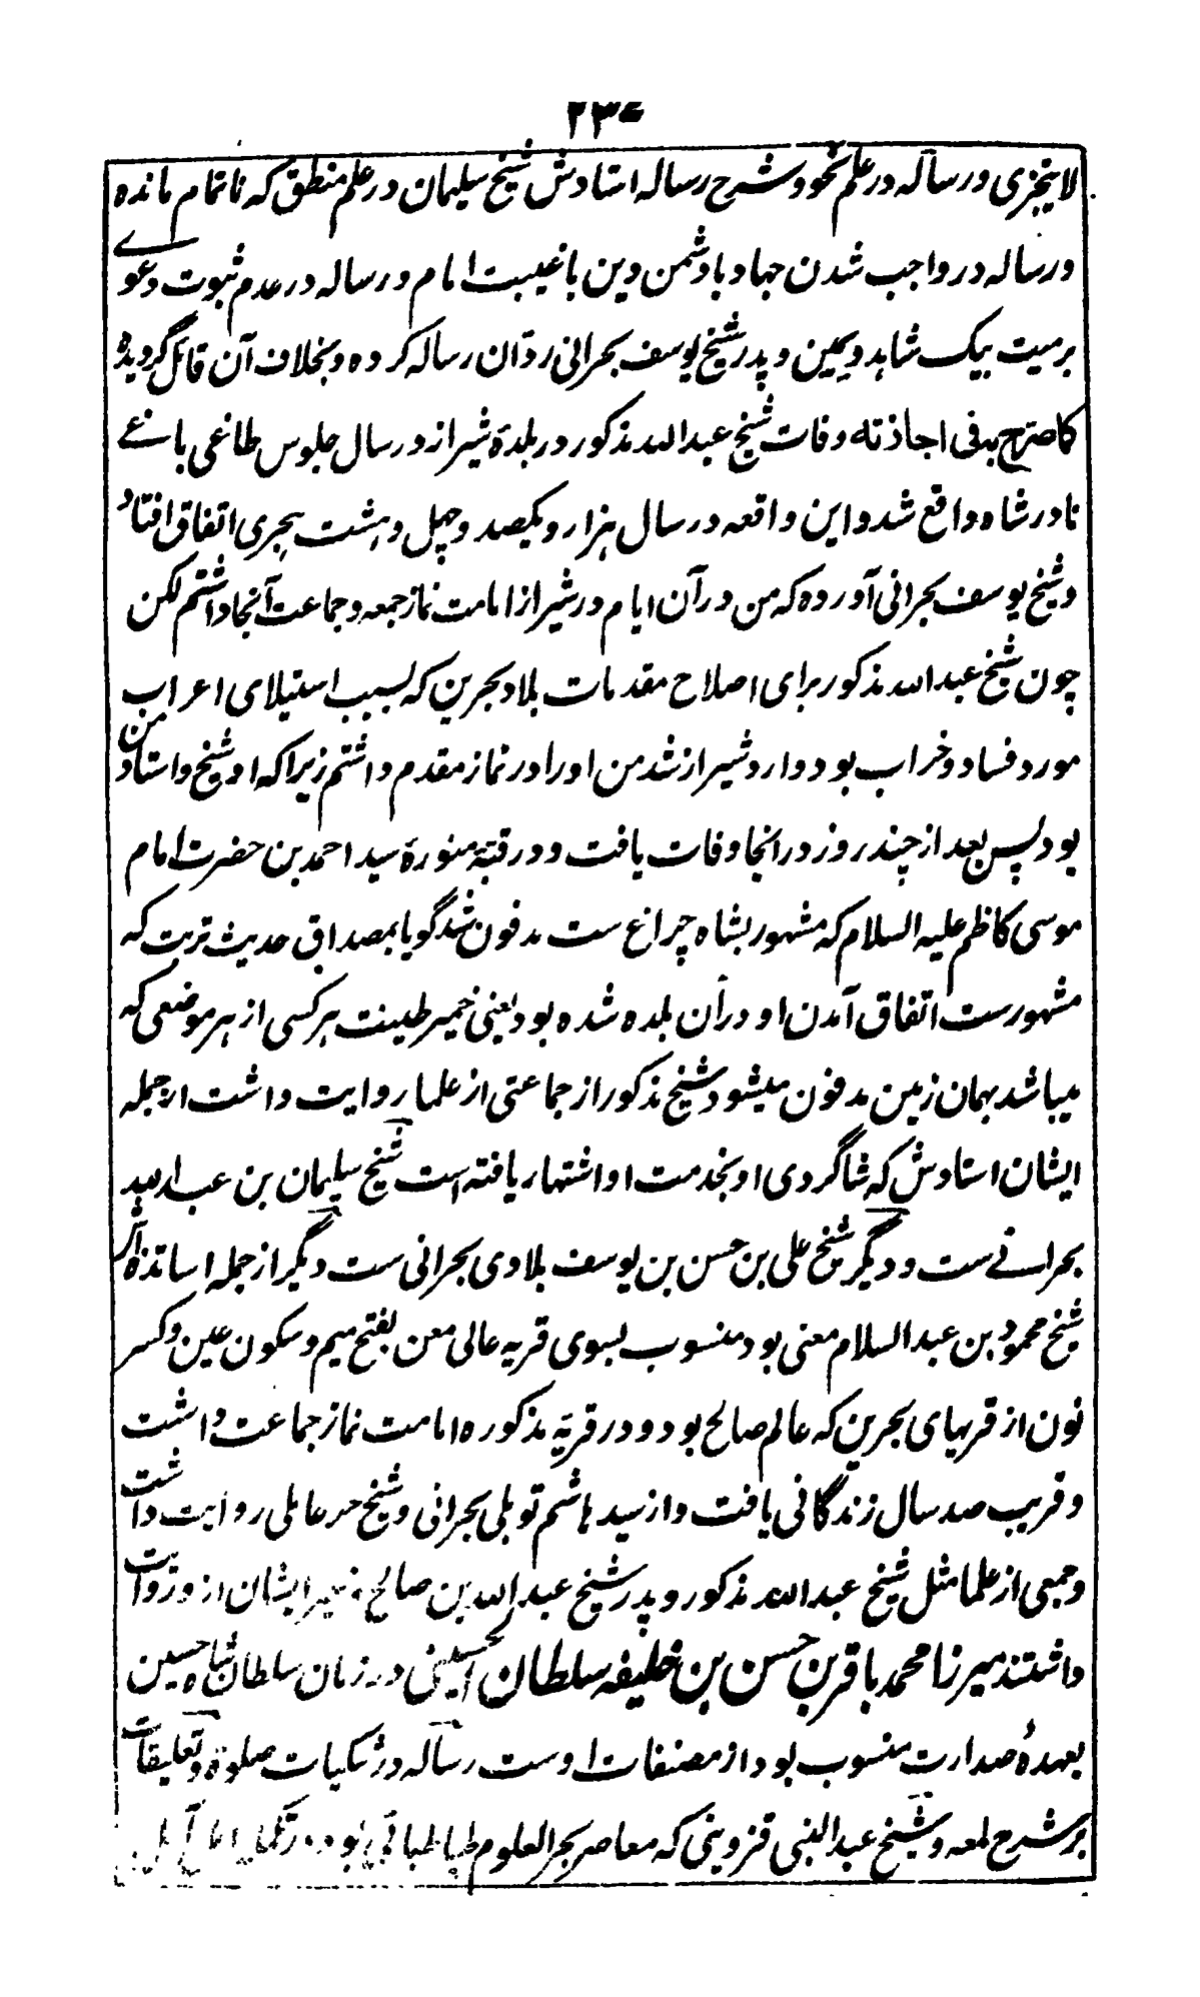 ۲۳۰
لا یتجزی و رساله در علم نحو و شرح رساله استادش شیخ سلیمان در علم منطق که ناتمام مانده
و رساله در واجب شدن جهاد با دشمن دین با غیبت امام و رساله در عدم ثبوت دعوے
بر میت بیک شاهد و یمین و پدر شیخ یوسف بحرانی رد آن رساله کرده و بخلاف آن قائل گردیده
کما صرح به فی اجازته وفات شیخ عبدالله مذکور در بلدۀ شیراز در سال جلوس طاغی باغے
نادر شاه واقع شد و این واقعه در سال هزار و یکصد و چهل و هشت هجری اتفاق افتاد
و شیخ یوسف بحرانی آورده که من در آن ایام در شیراز امامت نماز جمعه و جماعت آنجا داشتم لکن
چون شیخ عبدالله مذکور برای اصلاح مقدمات بلاد بحرین که بسبب استیلای اعراب
مورد فساد و خراب بود وارد شیراز شد من او را در نماز مقدم داشتم زیرا که او شیخ و استاد من
بود پس بعد از چند روز در انجا وفات یافت و در قبۀ منورۀ سید احمد بن حضرت امام
موسی کاظم علیه السلام که مشهور بشاه چراغ ست مدفون شد گویا بمصداق حدیث تربت که
مشهورست اتفاق آمدن او در آن بلده شده بود یعنی خمیر طینت هر کسی از هر موضعی که
میباشد بهمان زمین مدفون میشود شیخ مذکور از جماعتی از علما روایت داشت از جمله
ایشان استادش که شاگردی او بخدمت او اشتهار یافته است شیخ سلیمان بن عبدالله
بحرانے ست و دیگر شیخ علی بن حسن بن یوسف بلادی بحرانی ست دیگر از جمله اساتذه اش
شیخ محمود بن عبدالسلام معنی بود منسوب بسوی قریه عالی معن بفتح میم و سکون عین و کسر
نون از قریهای بحرین که عالم صالح بود و در قریۀ مذکوره امامت نماز جماعت داشت
و قریب صد سال زندگانی یافت و از سید هاشم توبلی بحرانی و شیخ حر عاملی روایت داشت
و جمعی از علما مثل شیخ عبدالله مذکور و پدر شیخ عبدالله بن صالح و غیر ایشان از و روایت
داشتند میرزا محمد باقر بن حسن بن خلیفه سلطان الحسینی در زمان سلطان شاه حسین
بعهدۀ صدارت منسوب بود از مصنفات اوست رساله در شکیات صلوة و تعلیقات
بر شرح لمعه و شیخ عبدالنبی قزوینی که معاصر بحر العلوم طباطبائی بود در تکملۀ امل آمل